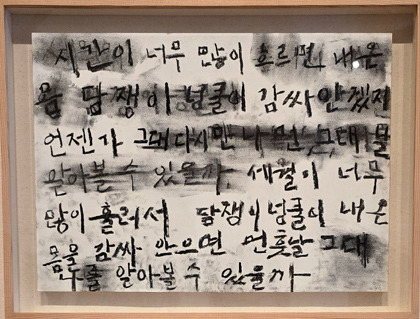 시간이 너무 많이 흐르면 내 온
몸 담쟁이 넝쿨이 감싸 안겠지
언젠가 그대 다시 만나면 그대 몰
알아볼 수 있을까. 세월이 너무
많이 흘러서 담쟁이 넝쿨이 내 온
몸을 감싸 안으면 먼훗날 그대
나를 알아볼 수 있을까